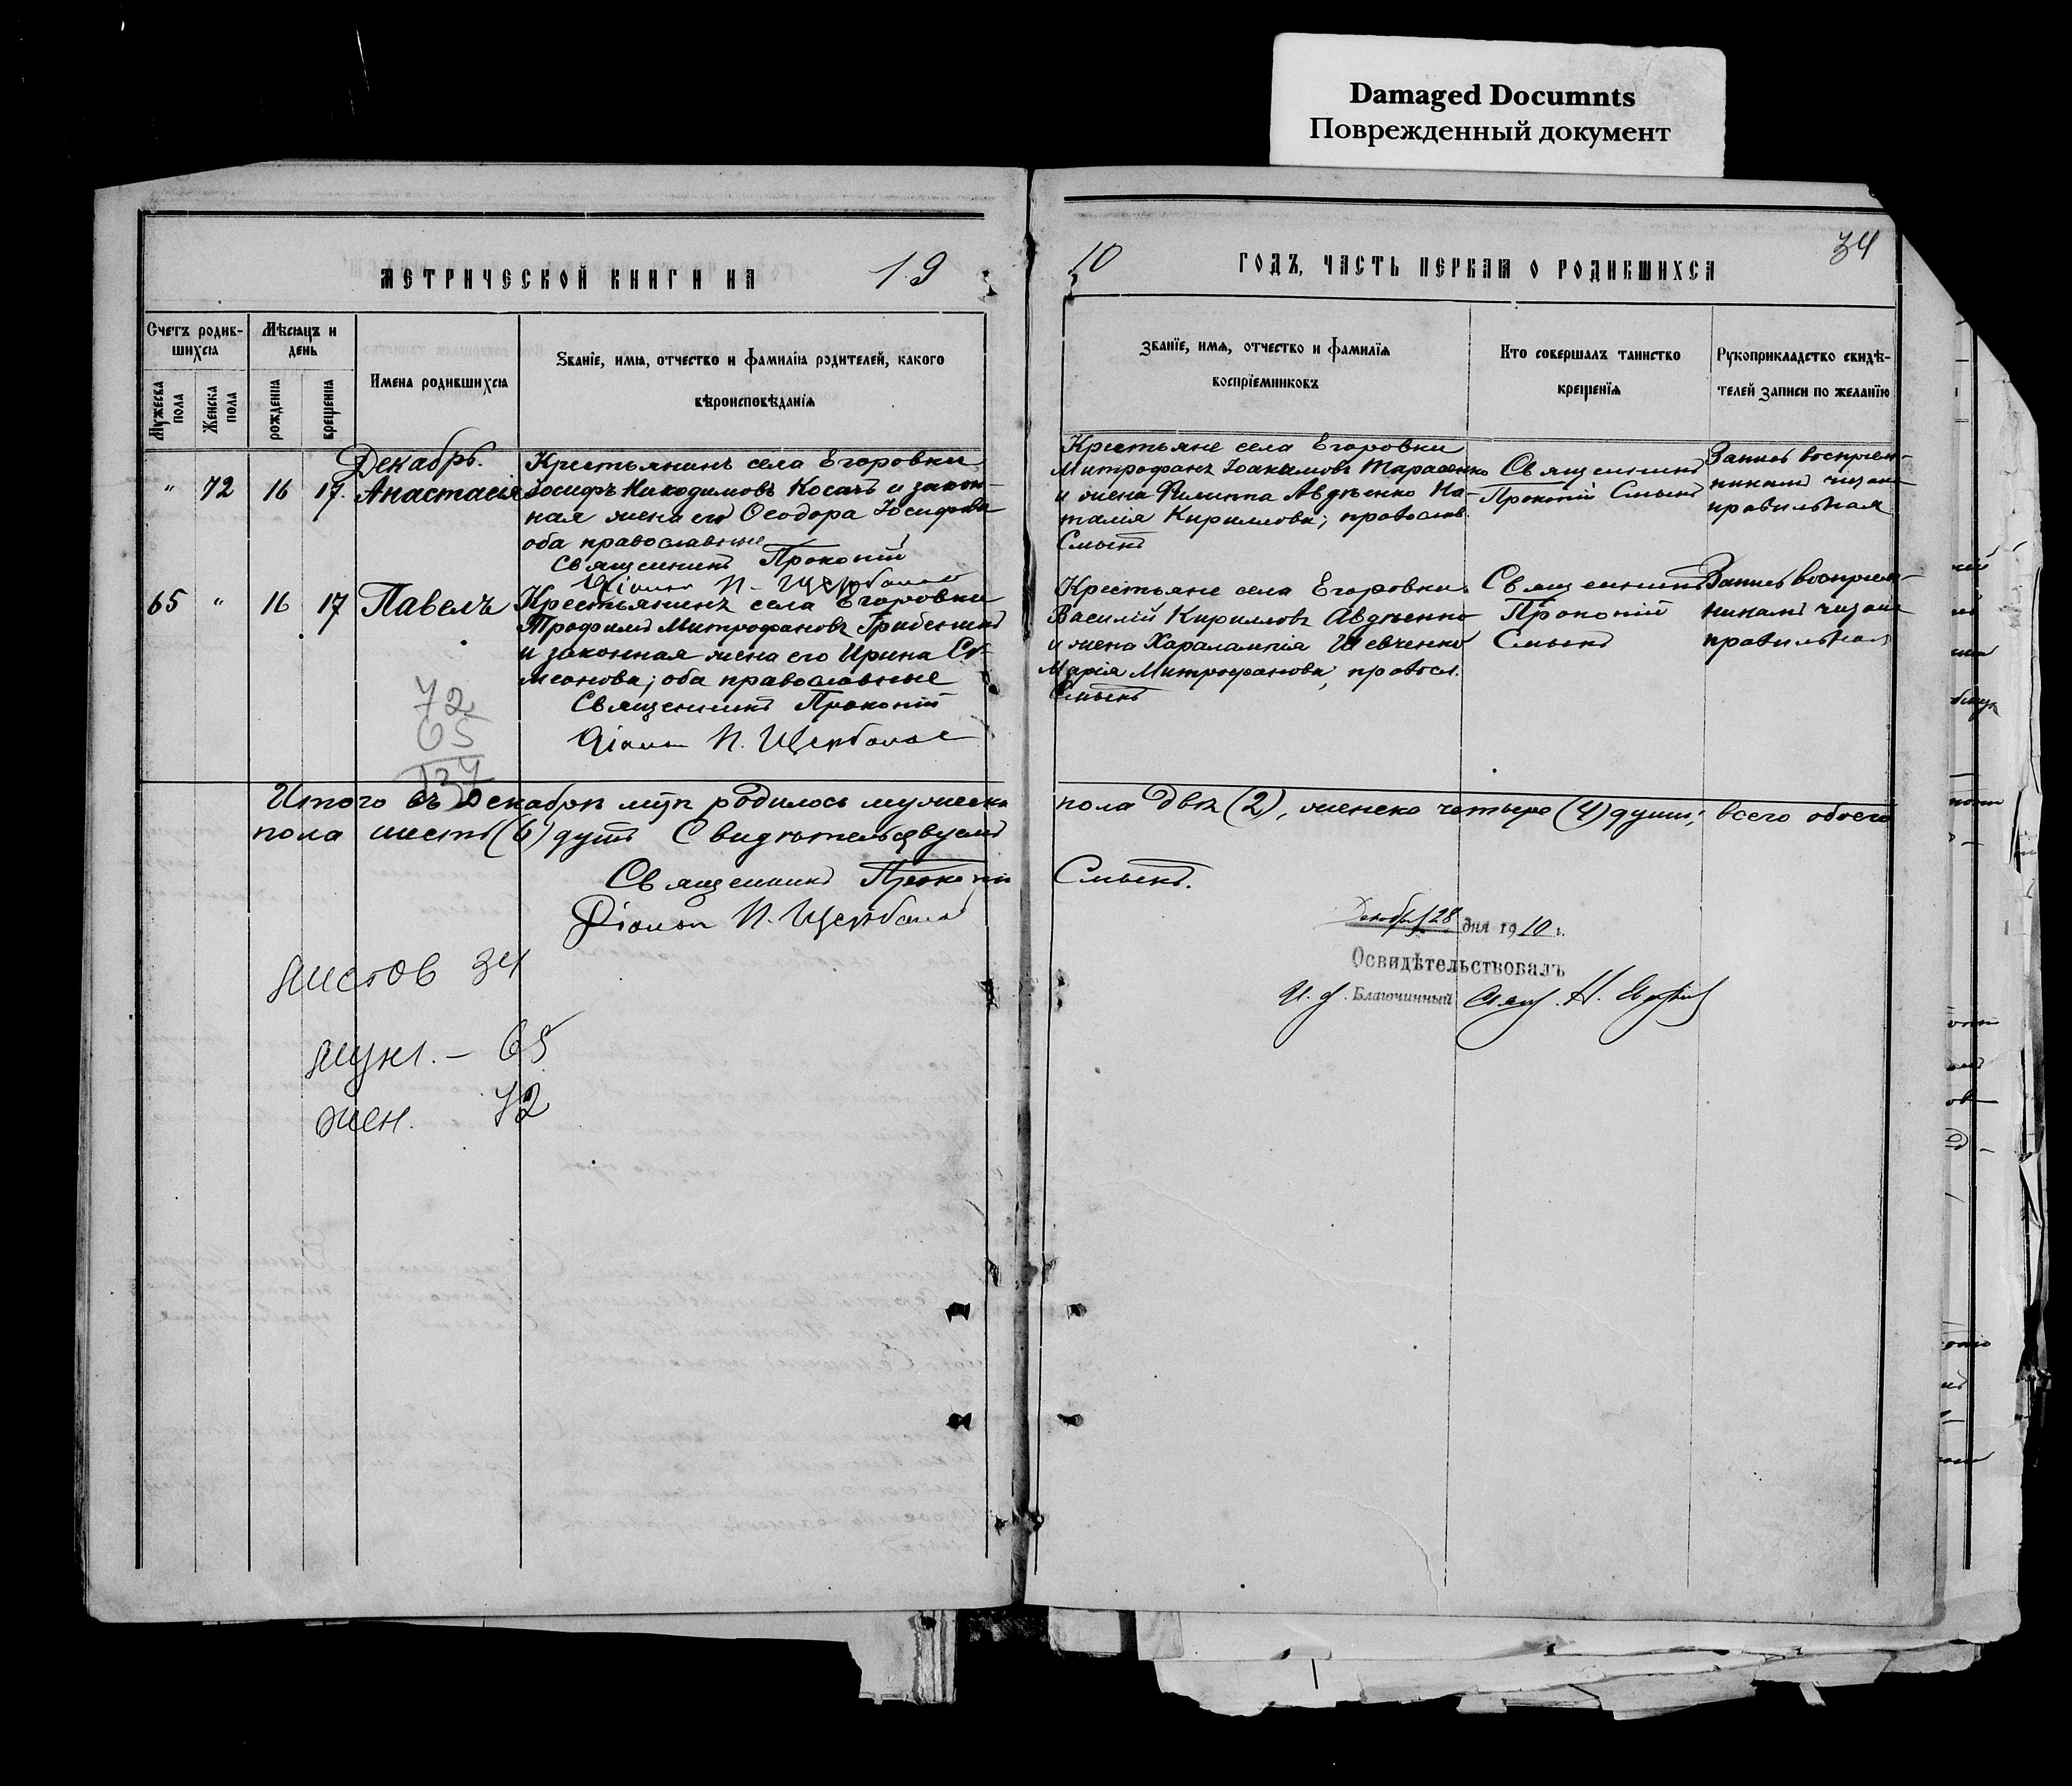 Damaged Documnts
Поврежденный документ
МЕТРИЧЕСКОЙ КНИГИ НА 19
10 ГОДЪ, ЧАСТЬ ПЕРВАЯ О РОДИВШИХСЯ
34
Счетъ родив-
шихся
Мѣсяцъ и
день
Мужеска
пола
Женска
пола
рожденія
крещенія
Имена родившихся
Званіе, имя, отчество и фамилія родителей, какого
вѣроисповѣданія
Званіе, имя, отчество и фамилія
воспріемниковъ
Кто совершалъ таинство
крещенія
Рукоприкладство свидѣ-
телей записи по желанію
Декабрь.
" 72 16 17. Анастасія
Крестьянинъ села Егоровки
Іосифъ Никодимовъ Косачъ и закон-
ная жена его Ѳеодора Іосифова
оба православные
Священникъ Прокопій
Діаконъ П. Щербаков
Крестьяне села Егоровки
Митрофанъ Іоакимовъ Тарасенко
и жена Филиппа Авдѣенко На-
талія Кириллова; православ.
Смыкъ
Священникъ
Прокопій Смыкъ
Запись воспріем-
никамъ читана
правильная
65 " 16 17 Павелъ
Крестьянинъ села Егоровки
Трофимъ Митрофановъ Гребенникъ
и законная жена его Ирина Си-
меонова; оба православные
Священникъ Прокопій
Діаконъ П. Щербаков
Крестьяне села Егоровки
Василій Кирилловъ Авдѣенко
и жена Харалампія Шевченко
Марія Митрофанова, правосл.
Смыкъ
Священникъ
Прокопій
Смыкъ
Запись воспріем-
никамъ читана
правильная
72
65
137
Итого въ Декабрѣ м-цѣ родилось мужеска
пола два (2), женска четыре (4) души; всего обоего
пола шесть (6) душъ Свидѣтельствуемъ
Священникъ Прокопій
Смыкъ.
Діаконъ П. Щербаков
Декабря 28 дня 1910 г.
Освидѣтельствовалъ
И. д. Благочинный
листов 34
мужл. – 65
жен. 72